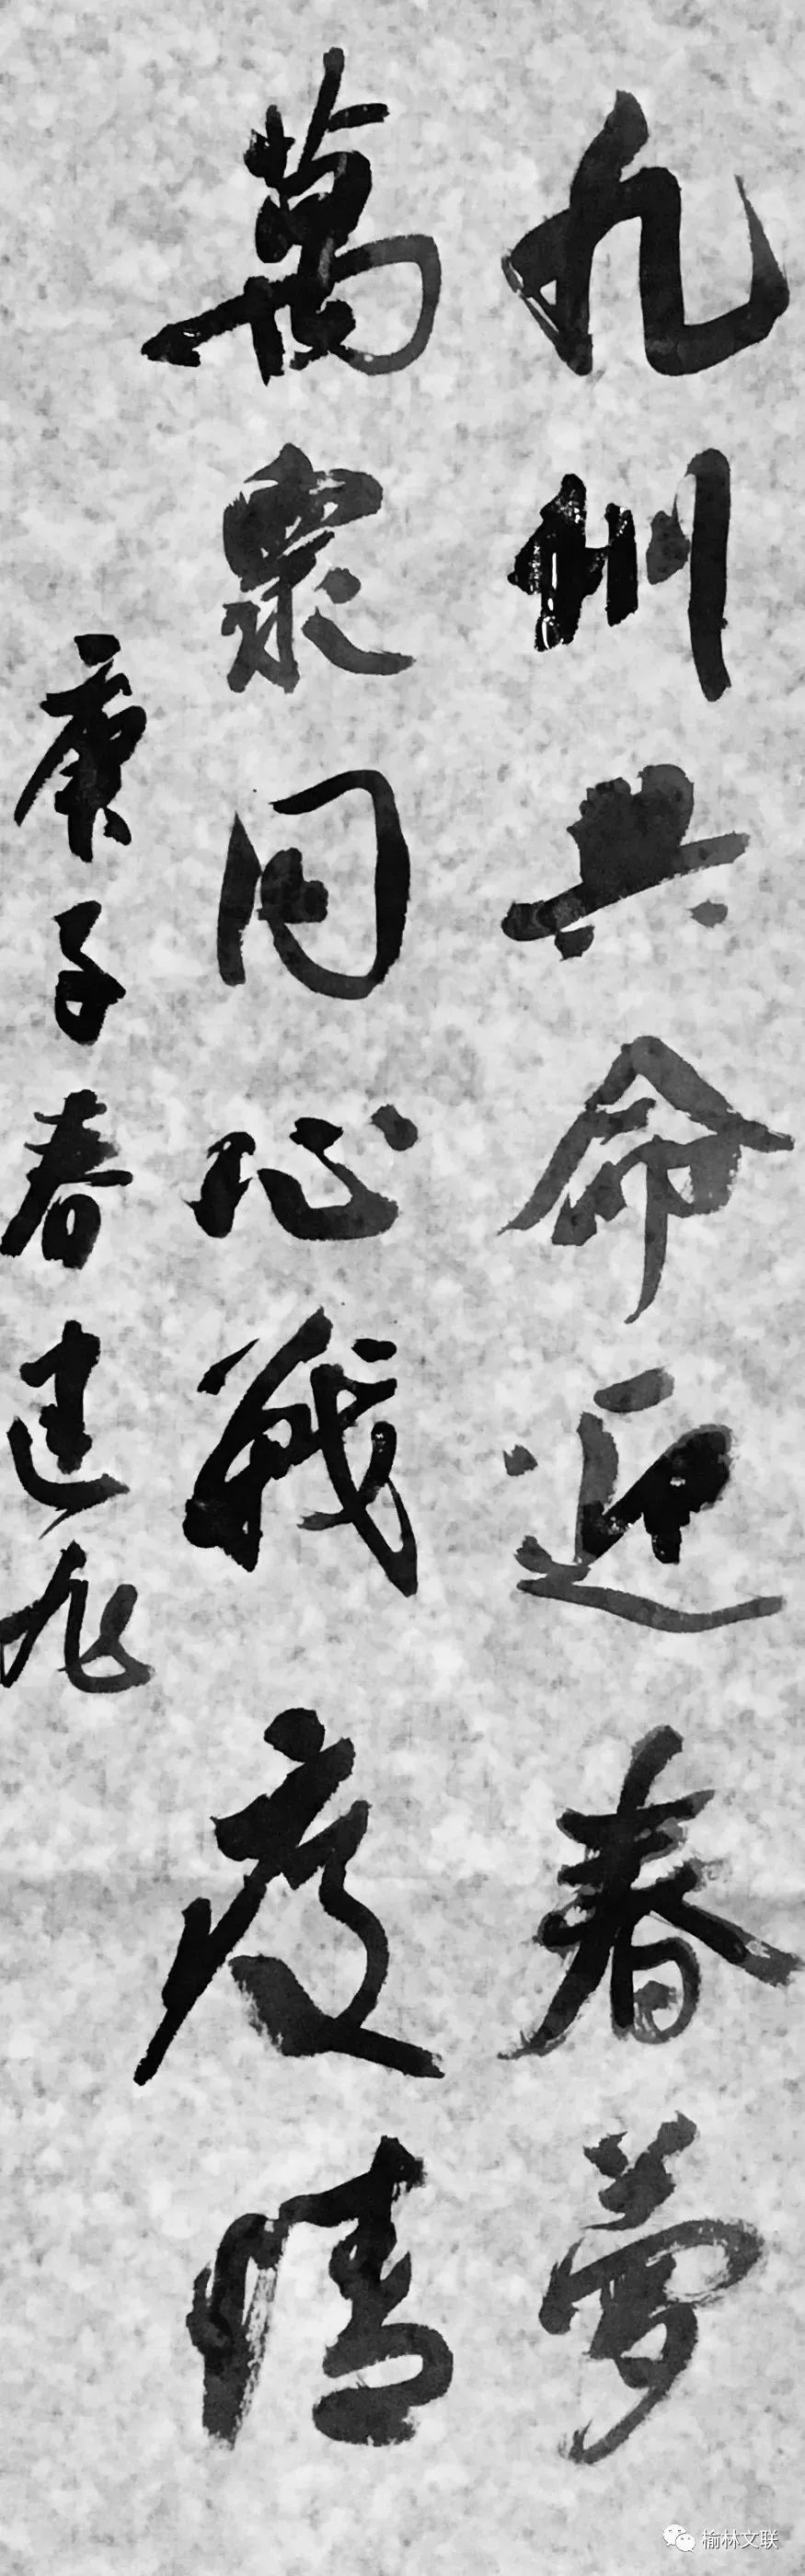 九州共命迎春夢
萬衆同心戰疫情
庚子春建旭
榆林文联